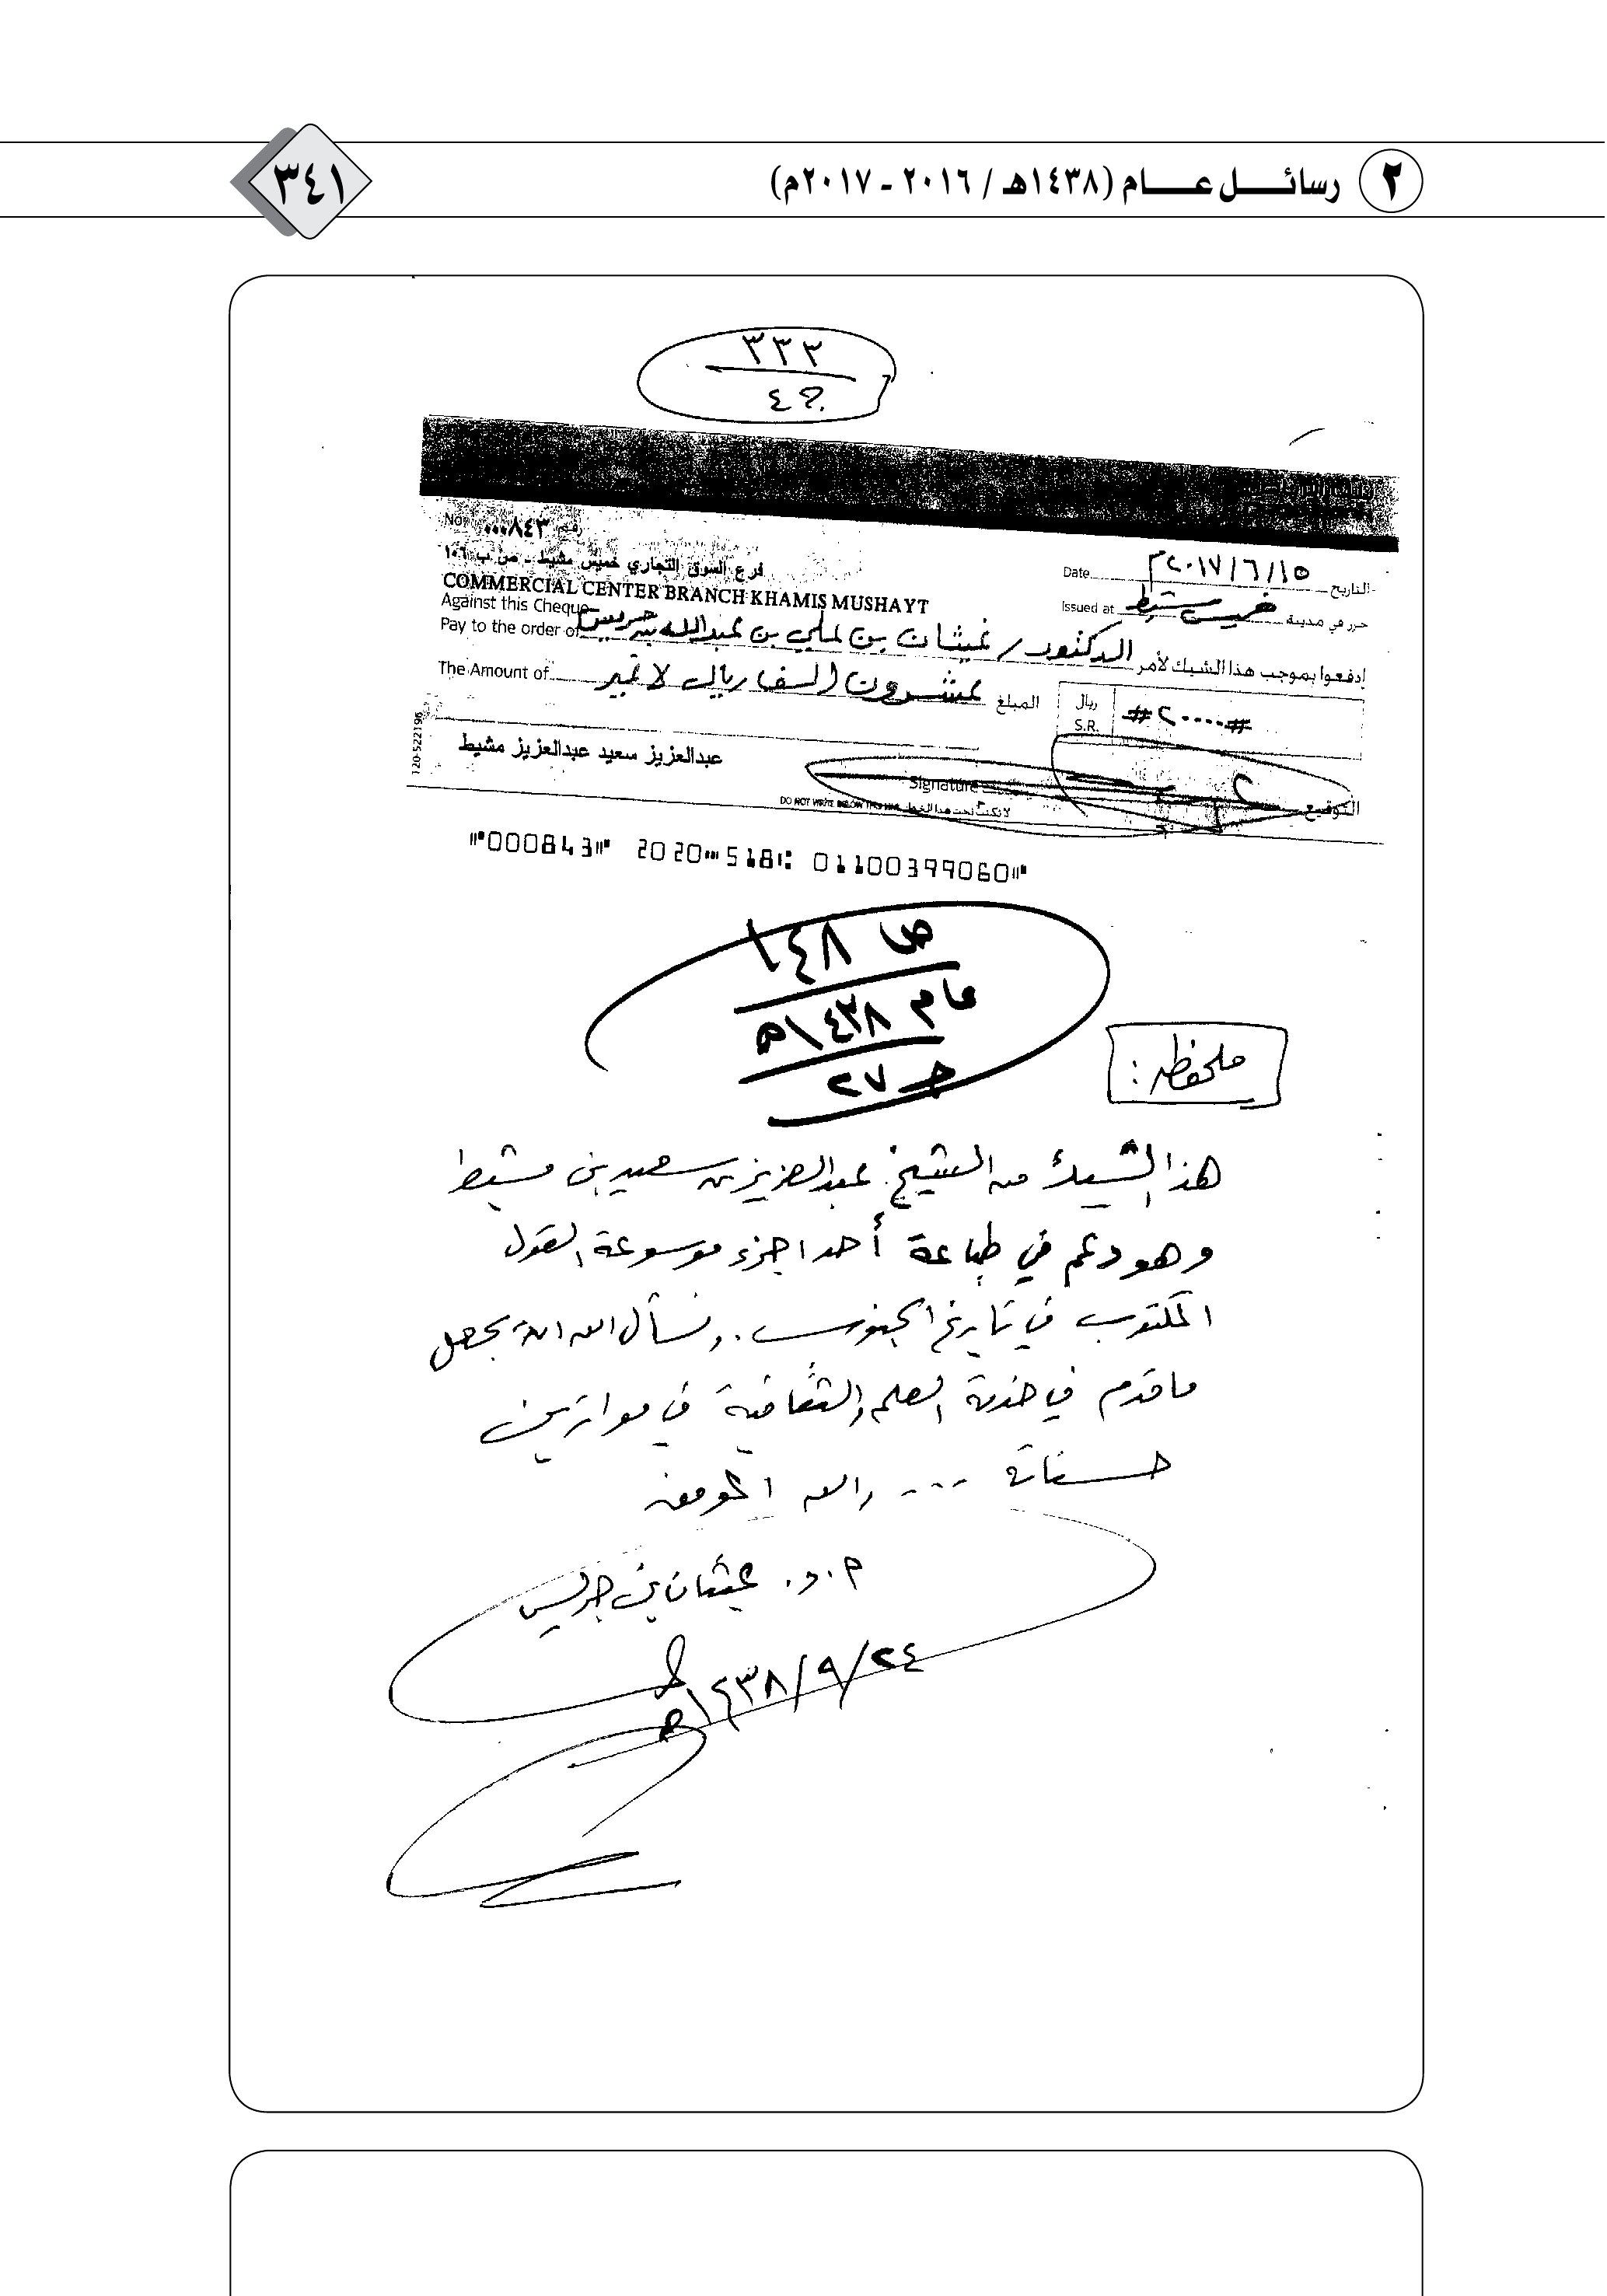 ٢ رسائل عام (١٤٣٨هـ / ٢٠١٦ - ٢٠١٧م)
٣٤١
٣٣٣
ج٤
No. ٠٠٠٨٤٣ رقم
فرع السوق التجاري خميس مشيط - ص ب ١٠٦
COMMERCIAL CENTER BRANCH KHAMIS MUSHAYT
Date ٢٠١٧/٦/١٥م التاريخ
Issued at خميس مشيط حرر في مدينة
Against this Cheque
Pay to the order of الدكتور / غيثان بن علي بن عبدالله بن جريس إدفعوا بموجب هذا الشيك لأمر
The Amount of عشرون ألف ريال لا غير المبلغ
ريال
S.R.
#٢٠٠٠٠#
عبدالعزيز سعيد عبدالعزيز مشيط
120-522196
Signature التوقيع
DO NOT WRITE BELOW THIS LINE لا تكتب تحت هذا الخط
"000843" 2020"'518": 01100399060"
ص ١٤٨
عام ١٤٣٨هـ
جـ ٢٧
ملحوظة :
هذا الشيك من الشيخ عبدالعزيز بن سعيد بن مشيط
وهو دعم في طباعة أحد اجزاء موسوعة القول
المكتوب في تاريخ الجنوب . ونسأل الله ان يجعل
ما قدم في خدمة العلم والثقافة في موازين
حسناته ... والله الموفق
أ.د. غيثان بن جريس
١٤٣٨/٩/٢٤هـ